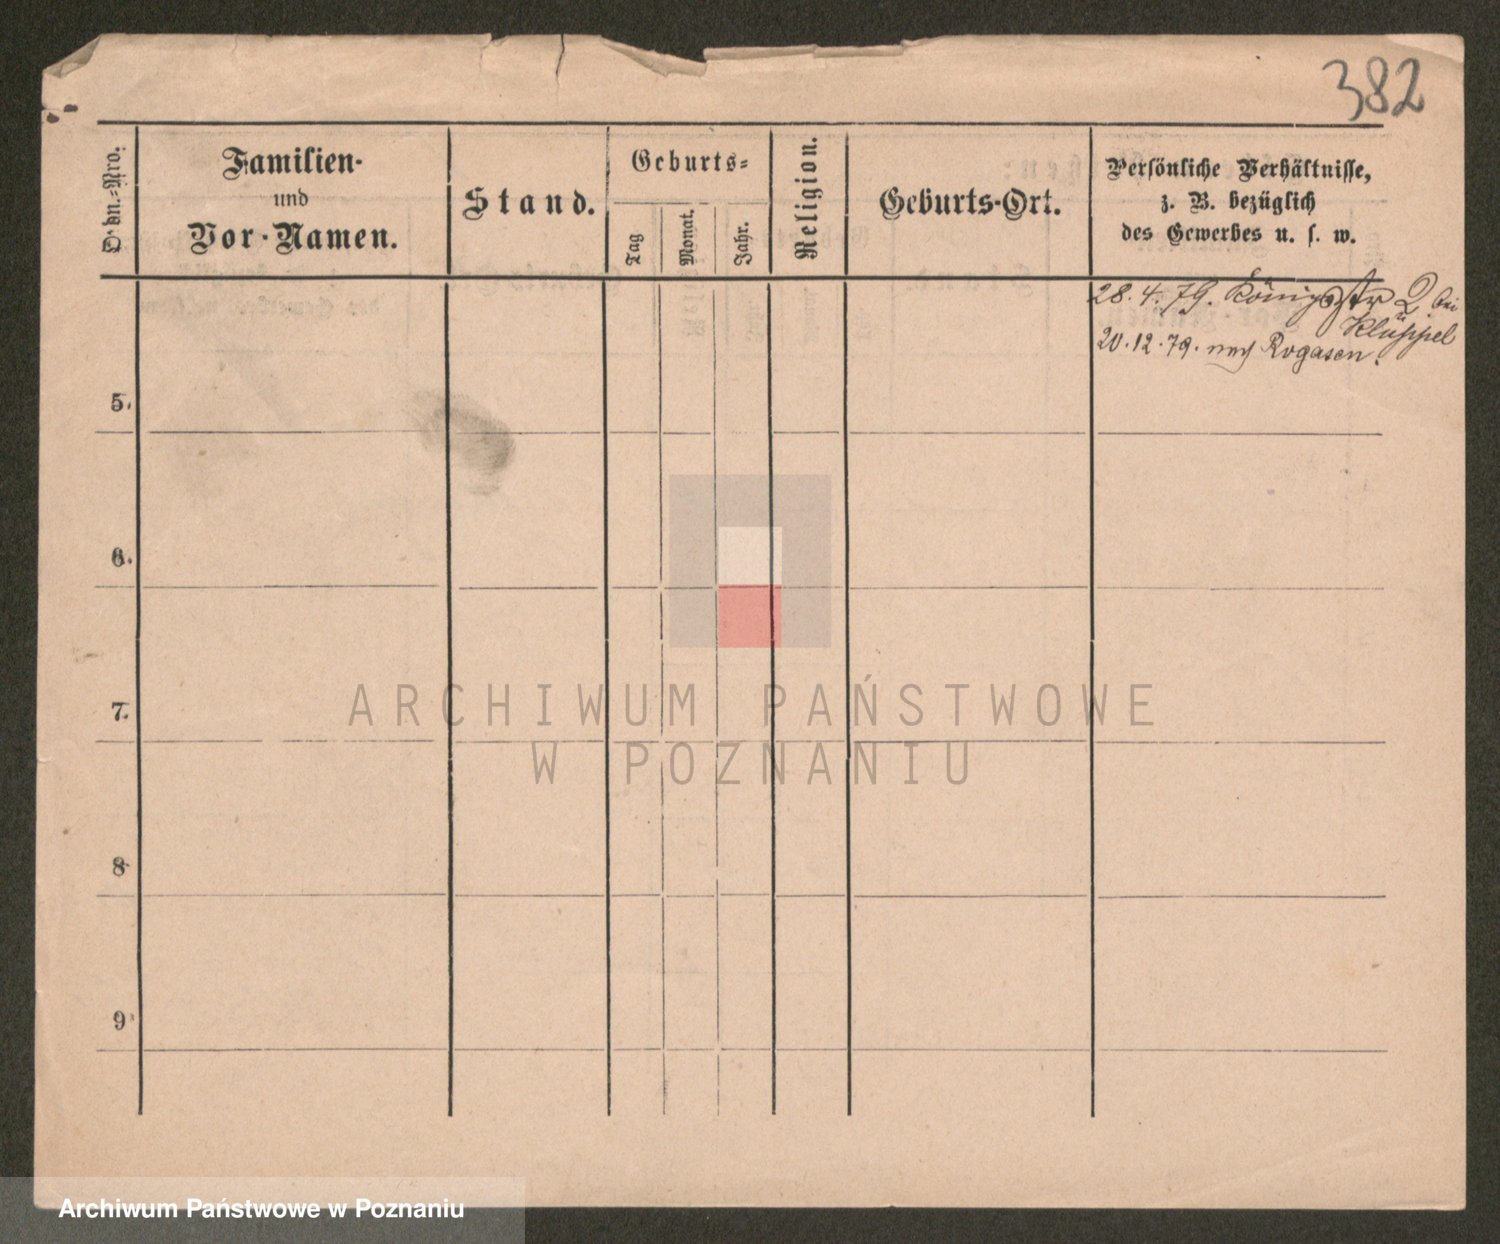 382
Ordn.-Nro.
Familien-
und
Vor-Namen.
Stand.
Geburts-
Tag
Monat.
Jahr.
Religion.
Geburts-Ort.
Persönliche Verhältnisse,
z. B. bezüglich
des Gewerbes u. s. w.
28. 4. 79. Königsstr 2 bei
Klüppel
20.12.79. nach Rogasen.
5.
6.
7.
8
9
ARCHIWUM PAŃSTWOWE
W POZNANIU
Archiwum Państwowe w Poznaniu